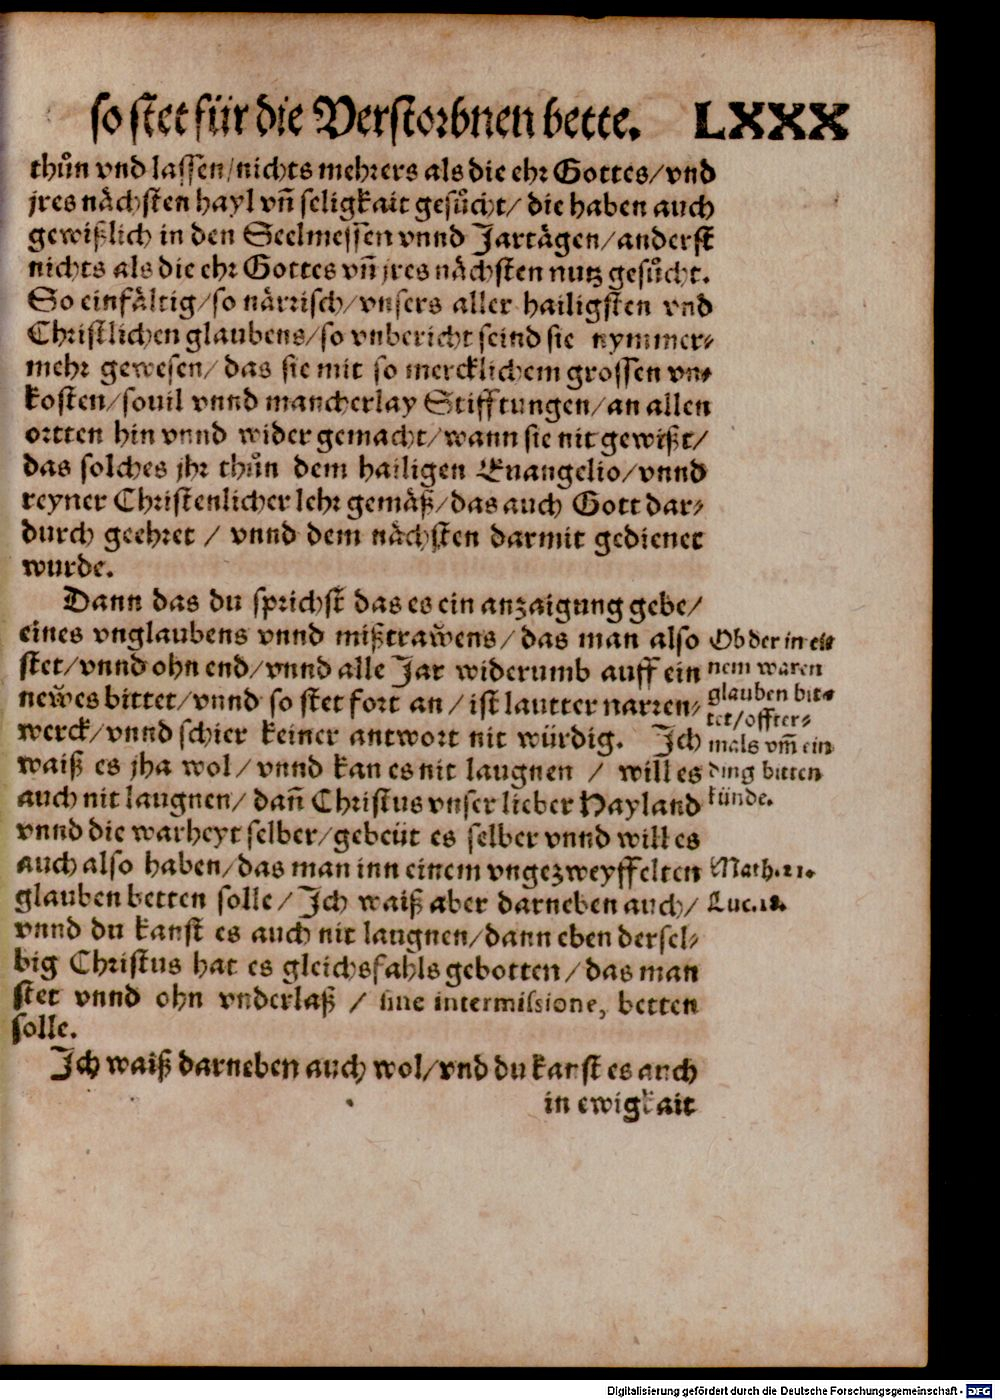 so stet für die Verstorbnen bette. LXXX
thůn vnd lassen/nichts mehrers als die ehr Gottes/vnd
jres nächsten hayl vñ seligkait gesůcht/ die haben auch
gewißlich in den Seelmessen vnnd Jartägen/anderst
nichts als die ehr Gottes vñ jres nächsten nutz gesůcht.
So einfältig/so närrisch/vnsers aller hailigsten vnd
Christlichen glaubens/so vnbericht seind sie nymmer-
mehr gewesen/ das sie mit so mercklichem grossen vn-
kosten/souil vnnd mancherlay Stifftungen/an allen
ortten hin vnnd wider gemacht/wann sie nit gewißt/
das solches jhr thůn dem hailigen Euangelio/vnnd
reyner Christenlicher lehr gemäß/das auch Gott dar-
durch geehret / vnnd dem nächsten darmit gedienet
wurde.
Dann das du sprichst das es ein anzaigung gebe/
eines vnglaubens vnnd mißtraẅens/das man also
stet/vnnd ohn end/vnnd alle Jar widerumb auff ein
neẅes bittet/vnnd so stet fort an / ist lautter narren-
werck/vnnd schier keiner antwort nit würdig. Ich
waiß es jha wol/vnnd kan es nit laugnen / will es
auch nit laugnen/ dañ Christus vnser lieber Hayland
vnnd die warheyt selber/gebeüt es selber vnnd will es
auch also haben/das man inn einem vngezweyffelten
glauben betten solle/ Ich waiß aber darneben auch/
vnnd du kanst es auch nit laugnen/dann eben dersel-
big Christus hat es gleichsfahls gebotten/das man
stet vnnd ohn vnderlaß / sine intermissione, betten
solle.
Ich waiß darneben auch wol/vnd du kanst es auch
in ewigkait
Ob der in ei-
nem waren
glauben bit-
tet/offter-
mals vm̃ ein
ding bitten
künde.
Math.21.
Luc.18.
Digitalisierung gefördert durch die Deutsche Forschungsgemeinschaft - DFG